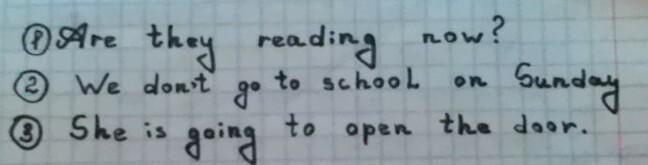 ① Are they reading now?
② We don't go to school on Sunday
③ She is going to open the door.